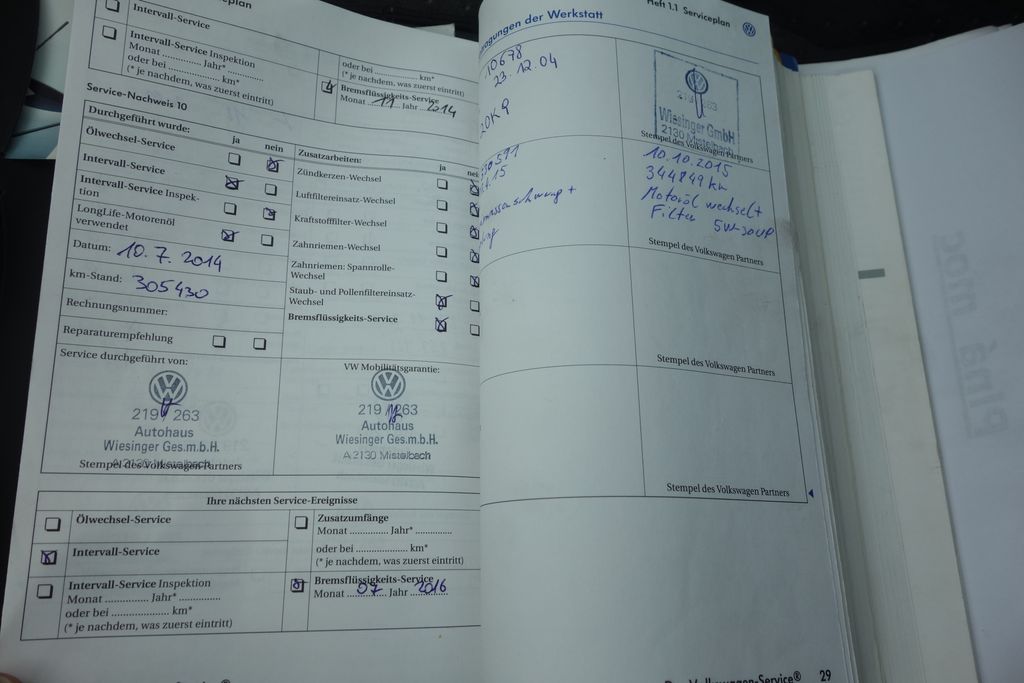 Serviceplan
Intervall-Service
Intervall-Service Inspektion
Monat ............. Jahr* .............
oder bei ................... km*
(* je nachdem, was zuerst eintritt)
oder bei .................... km*
(* je nachdem, was zuerst eintritt)
Bremsflüssigkeits-Service
Monat 11 Jahr 2014
Service-Nachweis 10
Durchgeführt wurde: ja nein
Ölwechsel-Service
Intervall-Service
Intervall-Service Inspek-
tion
LongLife-Motorenöl
verwendet
Datum: 10. 7. 2014
km-Stand: 305430
Rechnungsnummer:
Reparaturempfehlung
Zusatzarbeiten: ja
Zündkerzen-Wechsel
Luftfiltereinsatz-Wechsel
Kraftstofffilter-Wechsel
Zahnriemen-Wechsel
Zahnriemen: Spannrolle-
Wechsel
Staub- und Pollenfiltereinsatz-
Wechsel
Bremsflüssigkeits-Service
Service durchgeführt von:
219 263
Autohaus
Wiesinger Ges.m.b.H.
A 2130 Mistelbach
Stempel des Volkswagen Partners
VW Mobilitätsgarantie:
219 263
Autohaus
Wiesinger Ges.m.b.H.
A 2130 Mistelbach
Ihre nächsten Service-Ereignisse
Ölwechsel-Service
Intervall-Service
Intervall-Service Inspektion
Monat ............. Jahr* ..............
oder bei .................... km*
(* je nachdem, was zuerst eintritt)
Zusatzumfänge
Monat ............. Jahr* .............
oder bei .................... km*
(* je nachdem, was zuerst eintritt)
Bremsflüssigkeits-Service
Monat 07 Jahr 2016
Heft 1.1 Serviceplan
der Werkstatt
10678
23. 12. 04
219 263
Wiesinger GmbH
2130 Mistelbach
Stempel des Volkswagen Partners
10. 10. 2015
344849 km
Motoröl wechsel +
Filter 5W-30
Stempel des Volkswagen Partners
Stempel des Volkswagen Partners
Stempel des Volkswagen Partners
29